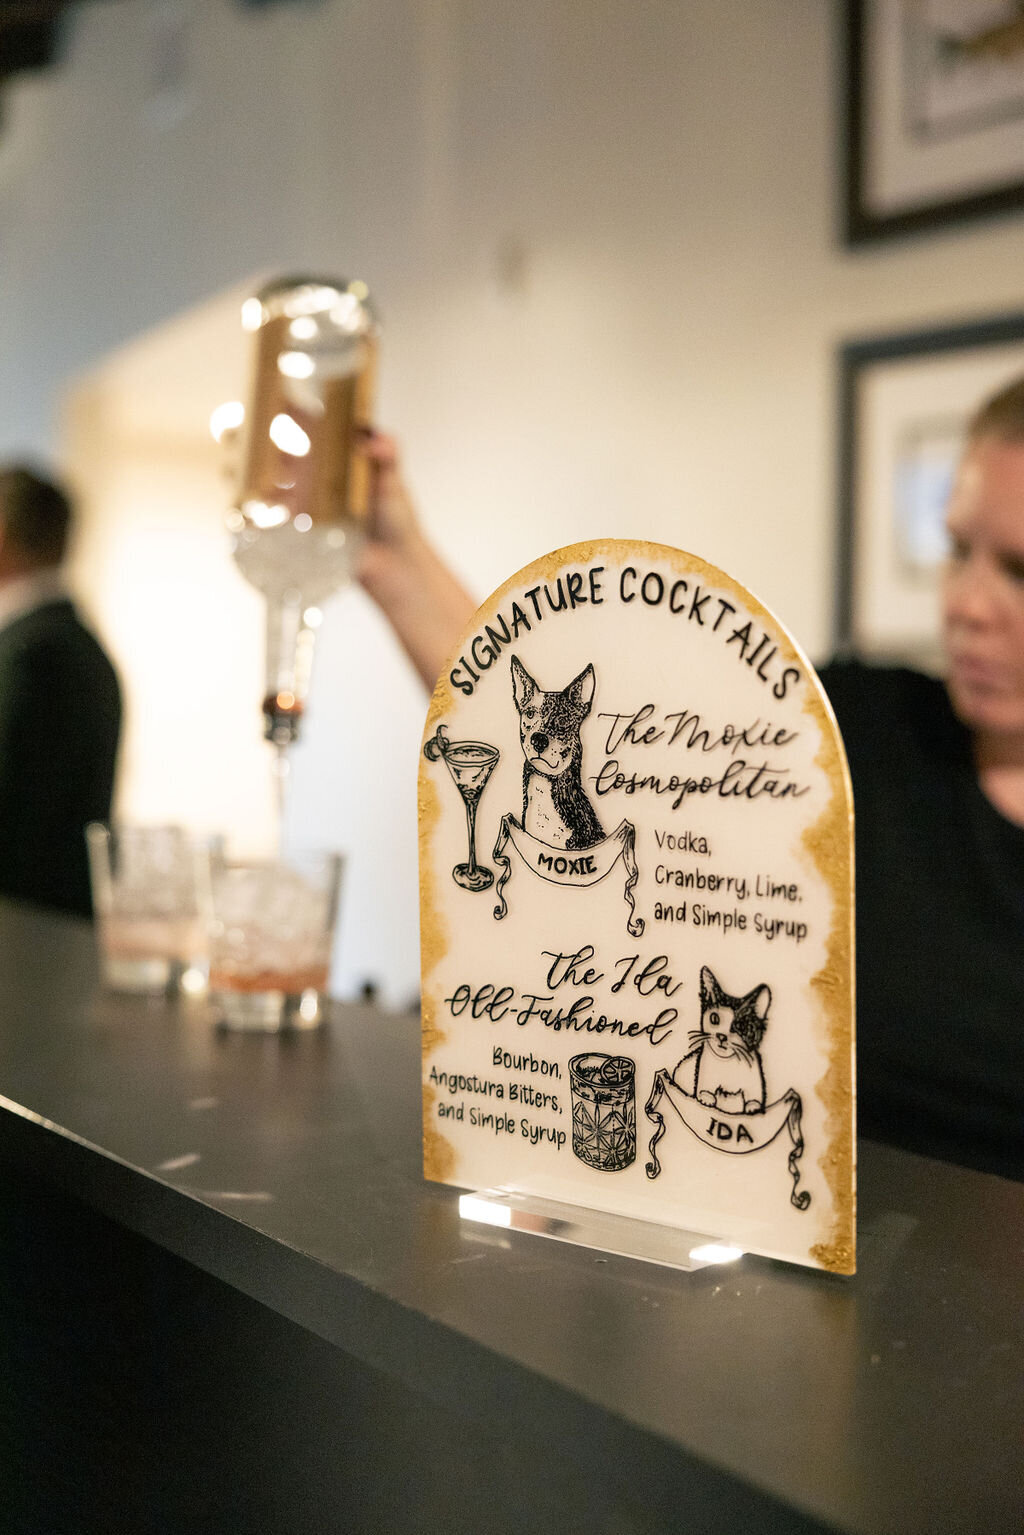 SIGNATURE COCKTAILS
The Moxie
Cosmopolitan
Vodka,
Cranberry, Lime,
and Simple Syrup
MOXIE
The Ida
Old-Fashioned
Bourbon,
Angostura Bitters,
and Simple Syrup
IDA